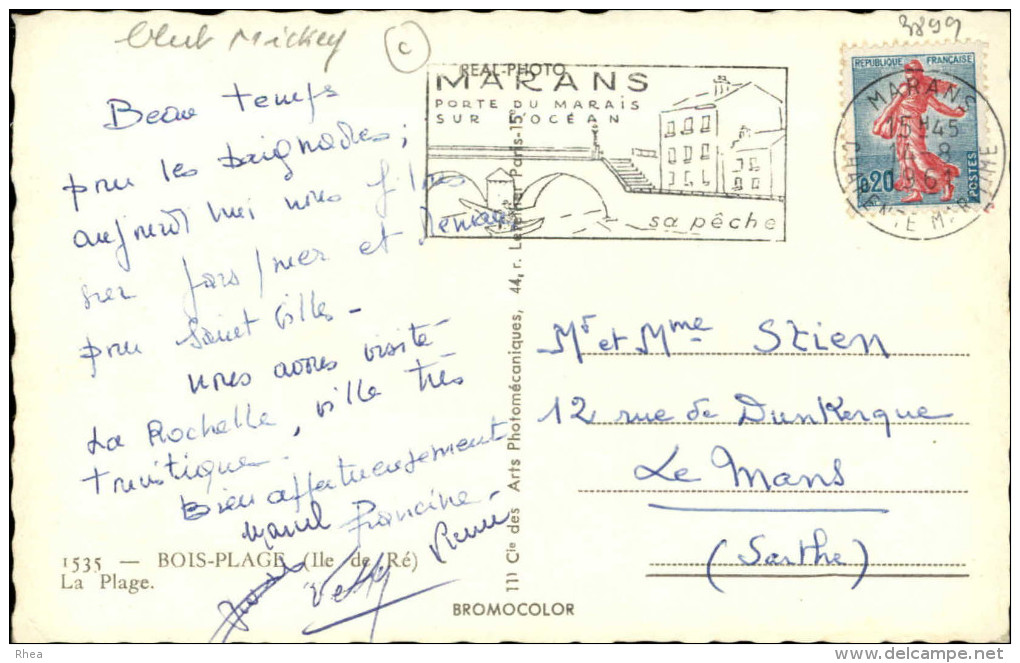 Club Mickey
C
3899
Beau temps
pour les baignades ;
aujourd'hui nous filons
sur Fors/mer et
pour Saint Gilles -
nous avons visité
La Rochelle, ville très
touristique.
Bien affectueusement
Marcel Francine -
1535 — BOIS-PLAGE (Ile de Ré)
La Plage.
REAL-PHOTO
MARANS
PORTE DU MARAIS
SUR L'OCÉAN
sa pêche
REPUBLIQUE FRANÇAISE
0,20
POSTES
MARANS
15H45
14-8
1961
CHARENTE MARITIME
111 Cie des Arts Photomécaniques, 44, r. Letellier Paris-15e
Mr et Mme Stien
12 rue de Dunkerque
Le Mans
(Sarthe)
BROMOCOLOR
Rhea
http://www.delcampe.net